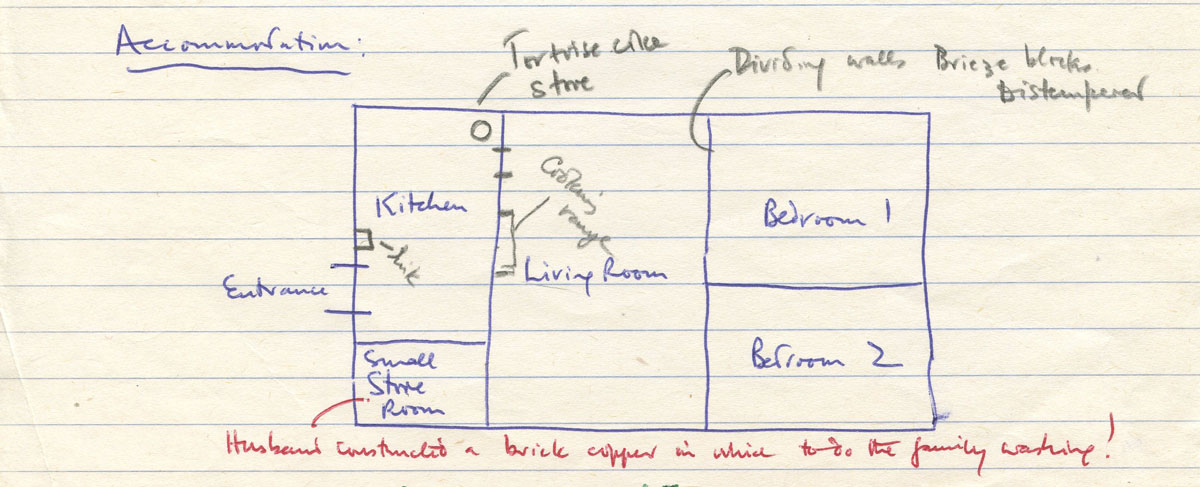 Accommodation:
Tortoise like
stove
Dividing walls Brieze blocks
Distempered
Kitchen
Cooking
range
Bedroom 1
sink
Living Room
Entrance
Small
Store
Room
Bedroom 2
Husband constructed a brick copper in which to do the family washing!